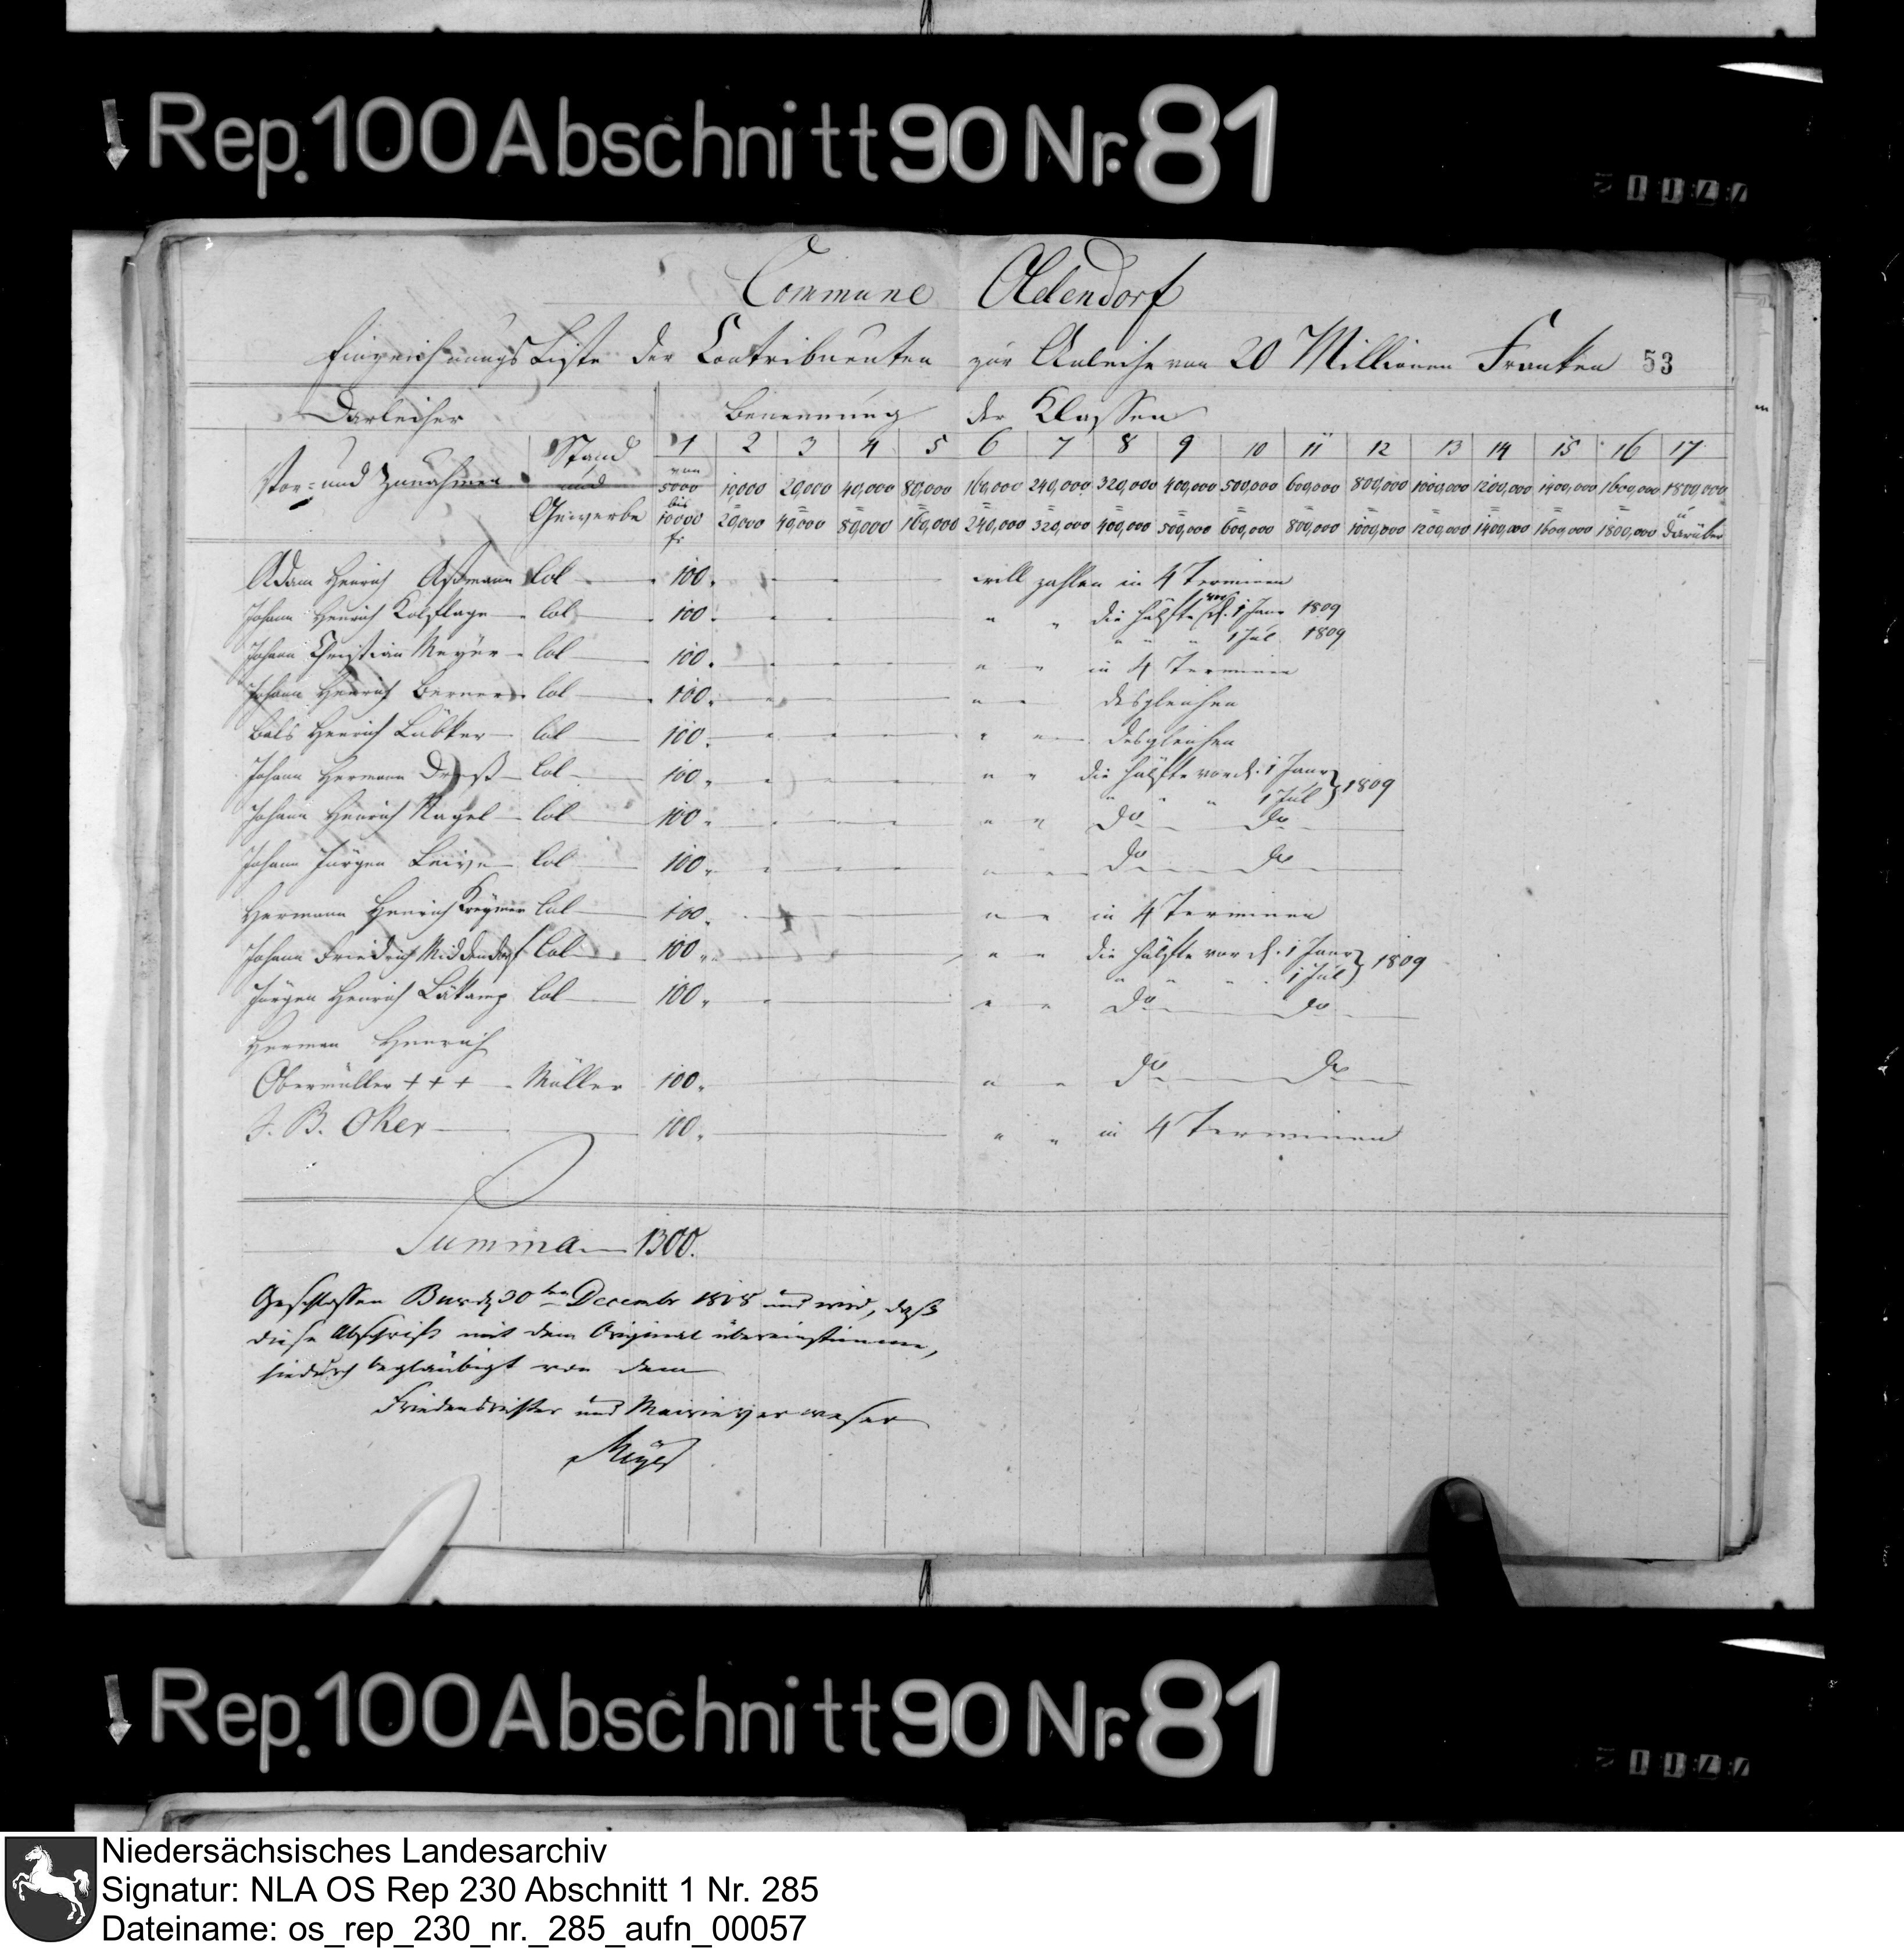 Rep. 100 Abschnitt 90 Nr. 81
Commune Oldendorf
Einzeichnungs Liste der Contribuenten zur Anleihe von 20 Millionen Franken 53
Darleiher Benennung der Klassen
Vor- und Zunahmen Stand und Gewerbe
1 2 3 4 5 6 7 8 9 10 11 12 13 14 15 16 17
von 5000 10,000 20,000 40,000 80,000 160,000 240,000 320,000 400,000 500,000 600,000 800,000 1000,000 1200,000 1400,000 1600,000 1800,000
bis 10000 fr 20,000 40,000 80,000 160,000 240,000 320,000 400,000 500,000 600,000 800,000 1000,000 1200,000 1400,000 1600,000 1800,000 u darüber
Adam Henrich Aßmann Col 100 will zahlen in 4 Terminen
Johann Henrich Kolflage Col 100 " " die Hälfte vor d. 1 Janr 1809
" " " 1 Jul. 1809
Johann Christian Meyer Col 100 " " in 4 Terminen
Johann Henrich Berner Col 100 " " desgleichen
Henrich Lübker Col 100 " " desgleichen
Johann Hermann Col 100 " " die Hälfte vor d. 1 Janr } 1809
" " " 1 Jul
Johann Henrich Nagel Col 100 " " Do Do
Johann Jürgen Col 100 " " Do Do
Hermann Henrich Col 100 " " in 4 Terminen
Johann Friedrich Middendorf Col 100 " " die Hälfte vor d. 1 Janr } 1809
" " " 1 Jul
Jürgen Henrich Col 100 " " Do Do
Herman Henrich
Obermüller +++ Müller 100 " " Do Do
J. B. Oker 100 " " in 4 Terminen
Summa 1300.
Geschlossen Buer d. 30ten Decembr 1808 und wird, daß
diese Abschrift mit dem Original übereinstimme,
hiedurch beglaubigt von dem
Friedensrichter und Mairieverweser
Meyer
Rep. 100 Abschnitt 90 Nr. 81
Niedersächsisches Landesarchiv
Signatur: NLA OS Rep 230 Abschnitt 1 Nr. 285
Dateiname: os_rep_230_nr._285_aufn_00057